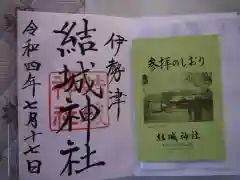 伊勢津
結城神社
令和四年七月十七日
参拝のしおり
結城神社